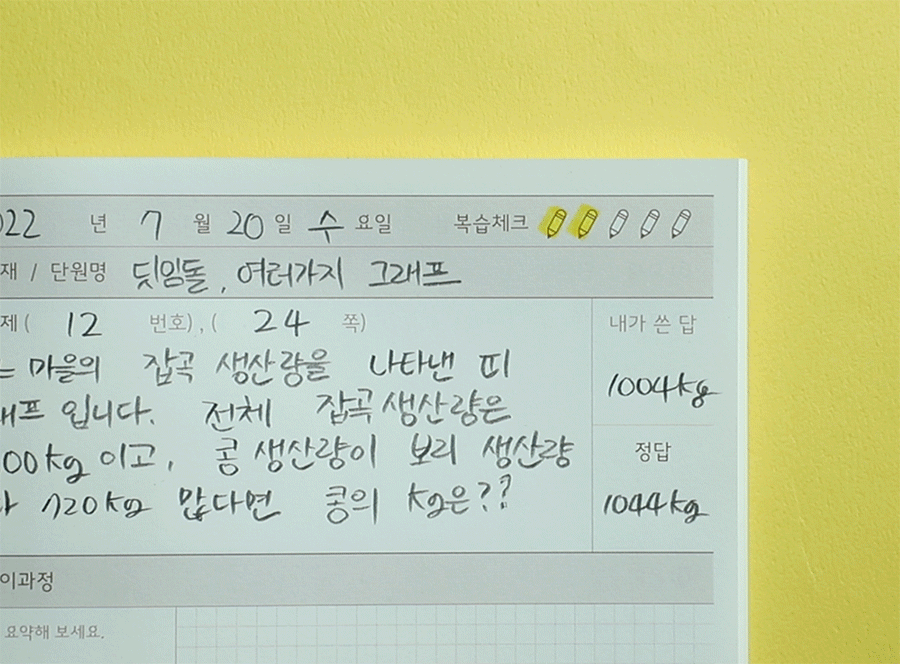 022 년 7 월 20 일 수 요일 복습체크
재 / 단원명 딋임돌, 여러가지 그래프
제 ( 12 번호) , ( 24 쪽)
내가 쓴 답
= 마을의 잡곡 생산량을 나타낸 띠
래프 입니다. 전체 잡곡 생산량은
00kg 이고, 콩 생산량이 보리 생산량
다 120kg 많다면 콩의 kg은??
1004kg
정답
1044kg
이과정
요약해 보세요.